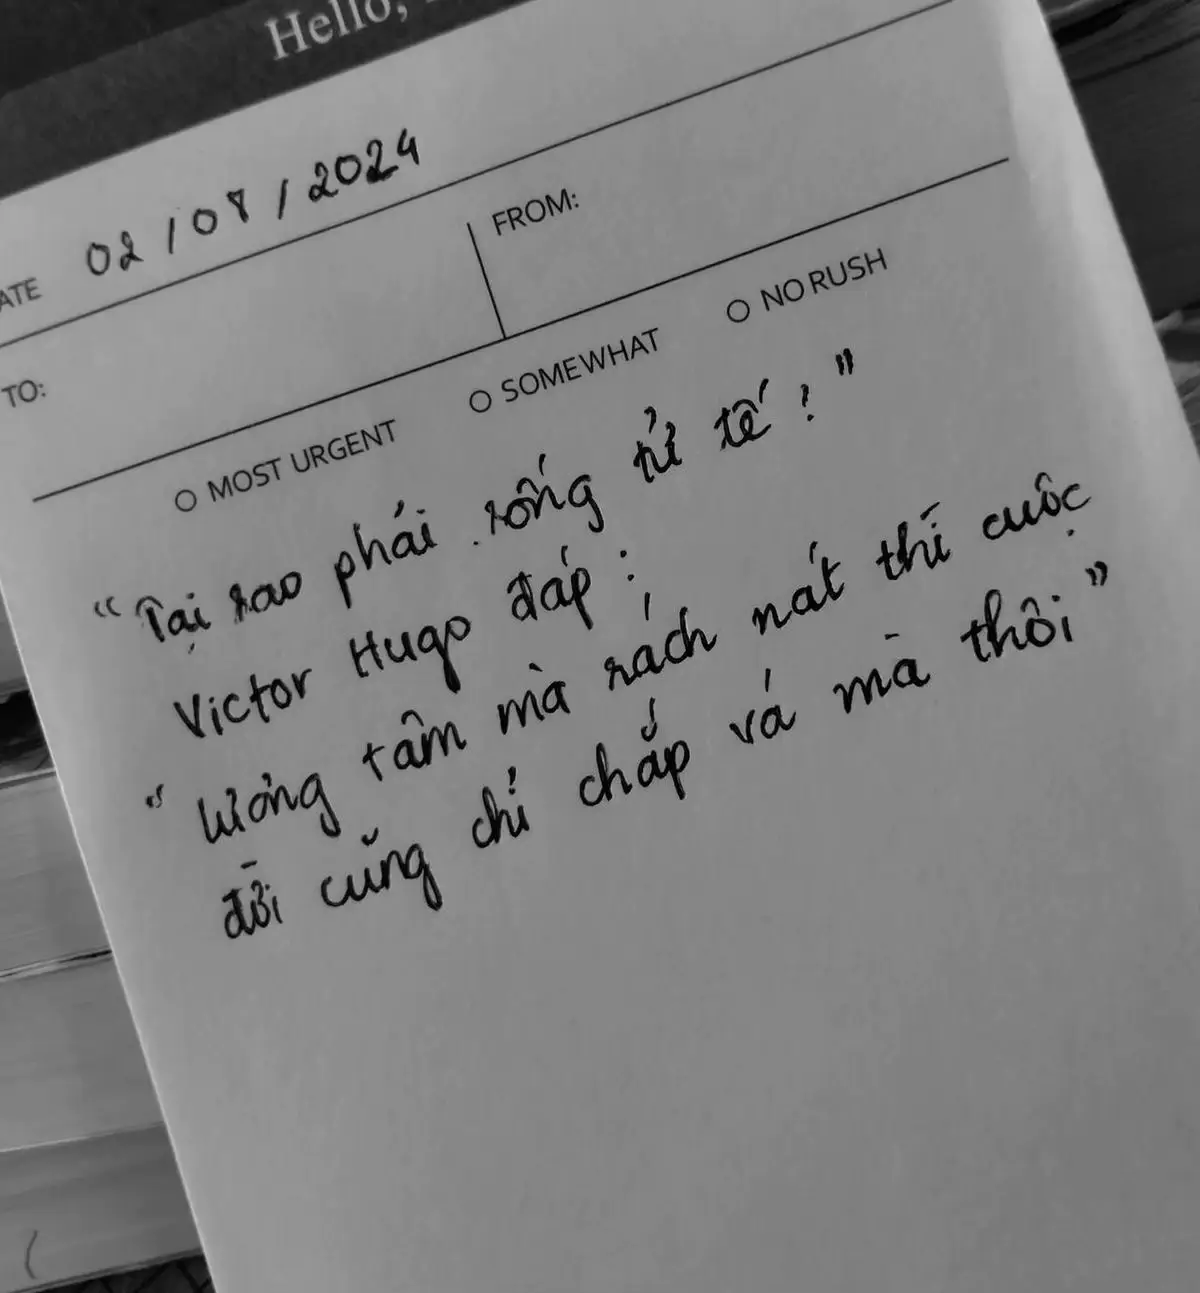 Hello,
ATE 02/08/2024
TO:
FROM:
MOST URGENT
SOMEWHAT
NO RUSH
"Tại sao phải sống tử tế?"
Victor Hugo đáp:
"Lương tâm mà rách nát thì cuộc
đời cũng chỉ chắp vá mà thôi"